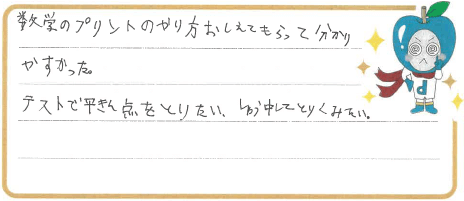 数学のプリントのやり方おしえてもらって分かり
やすかった。
テストで平きん点をとりたい、しゅう中してとりくみたい。
d